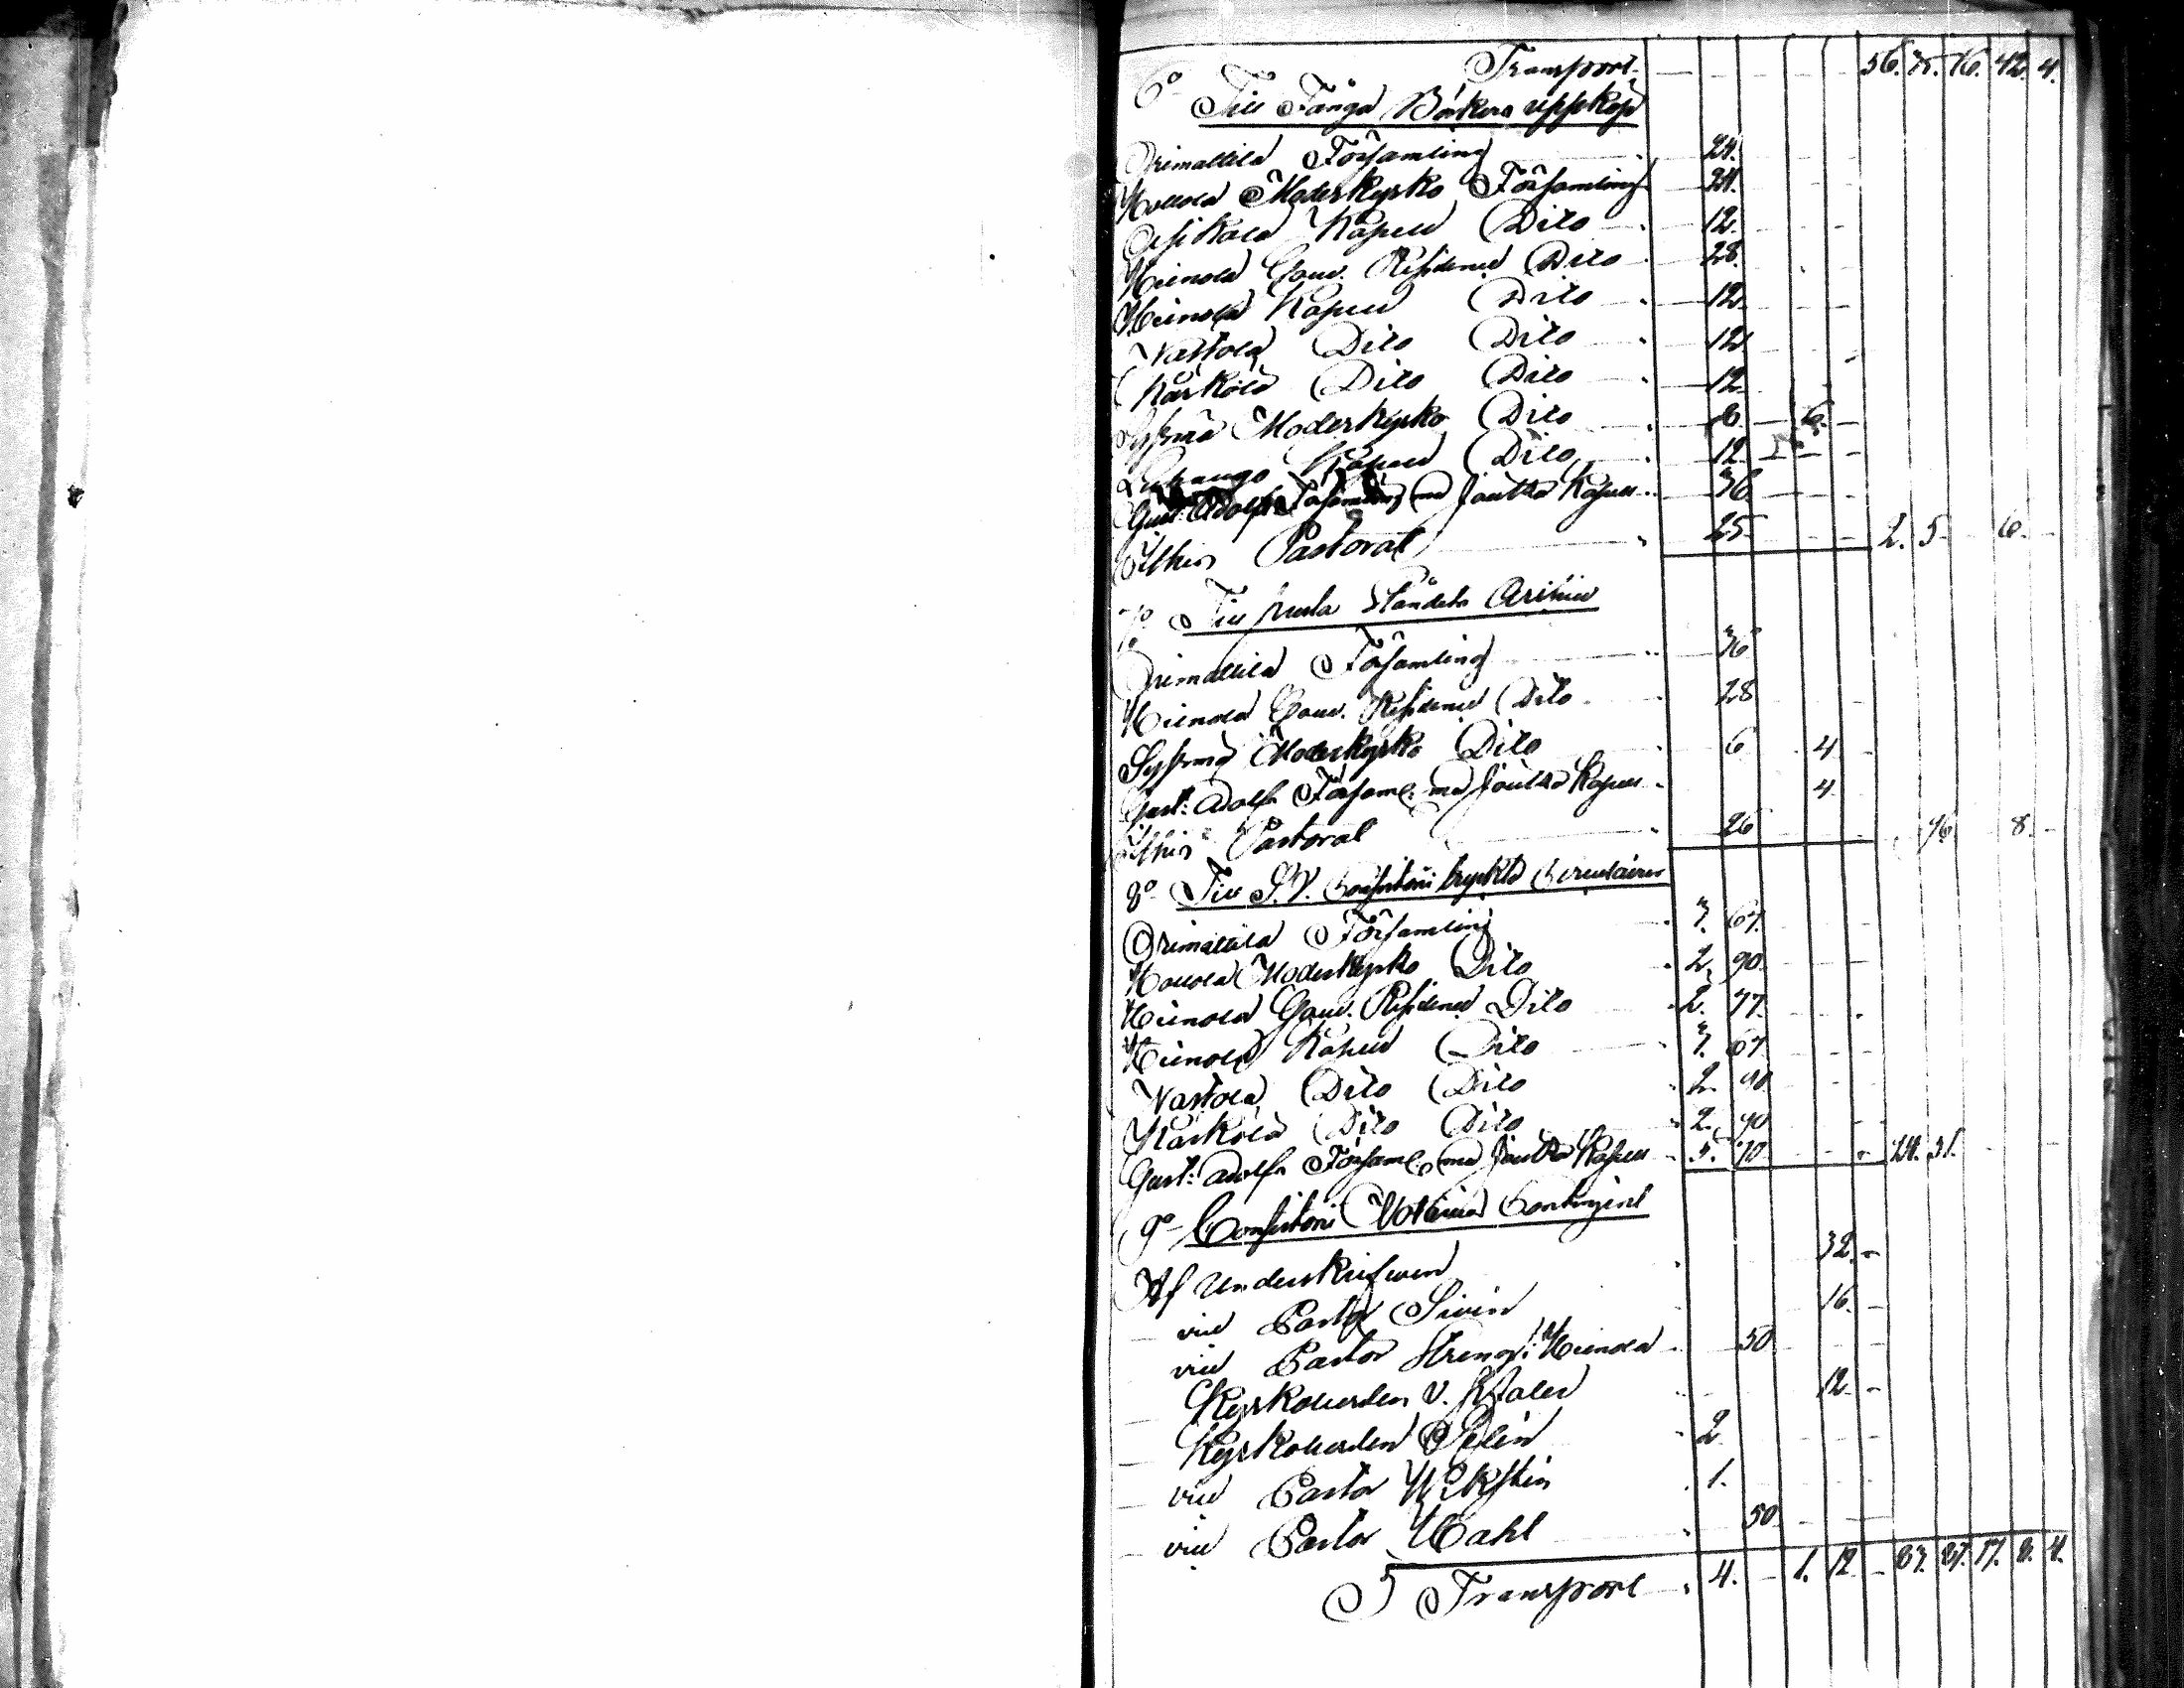 Transport 56. 75. 16. 42. 4.
6o Till Fånga Böckers uppköp
Orimattila Församling 24.
Hollola Moderkyrko Församling 24.
Asikkala Kapell Dito 12.
Heinola Gouv. Residence Dito 28.
Heinola Kapell Dito 12.
Nastola Dito Dito 12
Kärkölä Dito Dito 12
Sysmä Moderkyrko Dito 8 6.
Luhango Kapell Dito 12
Gust: Adolfs Församling med Joutsa Kapell 36
Ithis Pastorat 25 2. 5 6.
7o Till Ståndets
Orimattila Församling 36
Heinola Gouv. Residence Dito 28
Sysmä Moderkyrko Dito 6 4
Gust: Adolfs Församl: med Joutsa Kapell 4
Ithis Pastorat 26 96 8.
8o Till S.V. Consistorii tryckta Circulairer
Orimattila Församling 3. 67.
Hollola Moderkyrko Dito 2. 90
Heinola Gouv. Residence Dito 2. 77.
Heinola Kapell Dito 3. 67
Nastola Dito Dito 2. 90
Kärkölä Dito Dito 2. 90
Gust: Adolfs Församl: med Joutsa Kapell 5. 70 24. 51.
9o Consistorii Notarii Contingent
Af Underskrifven 32.
vice Pastor 16.
vice Pastor Streng i Heinola 50
Kyrkoherden 12
Kyrkoherden 2
vice Pastor Wikstén 1.
vice Pastor Wahl 50
Transport 4. 1. 12 83. 27. 17. 8. 4.